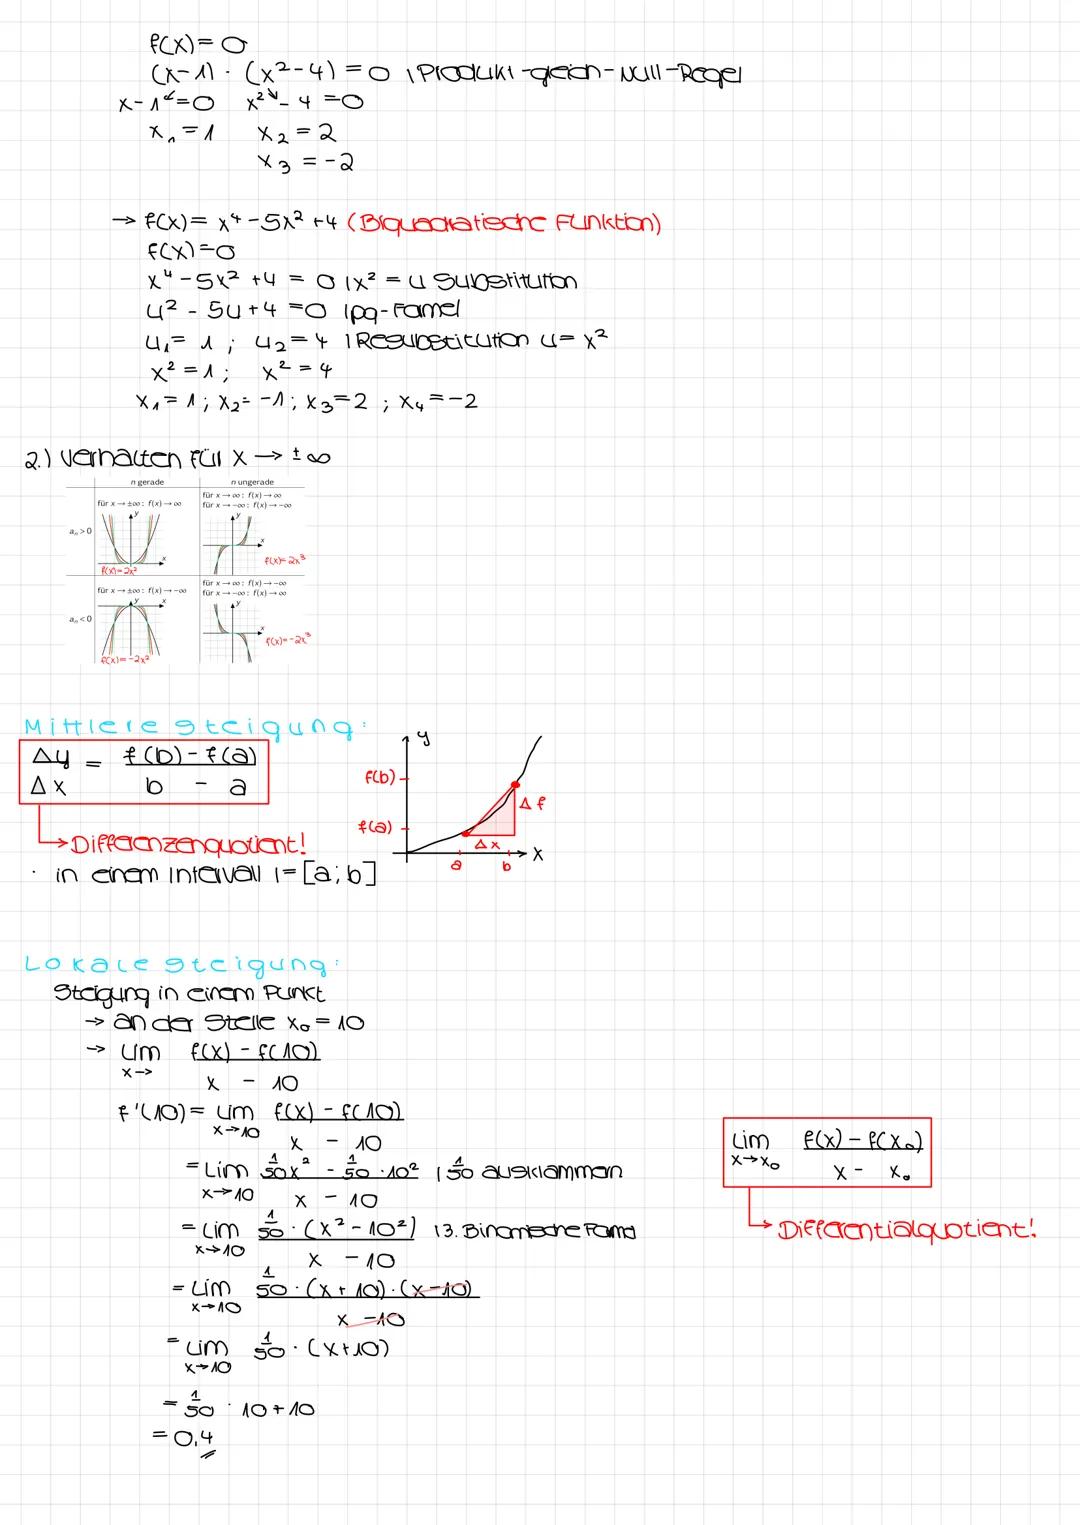 f(x) = 0
(x-1) · (x²-4) = 0 | Produkt-gleich-Null-Regel
x-1=0 x²-4=0
x₁=1 x₂=2
x₃=-2
→ f(x)= x⁴-5x²+4 (Biquadratische Funktion)
f(x)=0
x⁴-5x²+4 = 0 | x² = u Substitution
u²-5u+4=0 | pq-Formel
u₁= 1 ; u₂=4 | Resubstitution u= x²
x²=1 ; x²=4
x₁=1 ; x₂=-1 ; x₃=2 ; x₄=-2
2.) Verhalten für x → ±∞
n gerade n ungerade
für x → ±∞: f(x) → ∞
für x → ∞: f(x) → ∞
für x → -∞: f(x) → -∞
aₙ > 0
y
x
f(x)=2x²
y
x
f(x)=2x³
für x → ±∞: f(x) → -∞
für x → ∞: f(x) → -∞
für x → -∞: f(x) → ∞
aₙ < 0
y
x
f(x)=-2x²
y
x
f(x)=-2x³
Mittlere Steigung:
Δy = f(b)-f(a)
Δx b - a
→ Differenzenquotient!
· in einem Intervall I=[a;b]
y
f(b)
Δf
f(a)
Δx
x
a b
Lokale Steigung:
Steigung in einem Punkt
→ an der Stelle x₀=10
→ Lim f(x)-f(10)
x→ x - 10
f'(10)= Lim f(x)-f(10)
x→10 x - 10
= Lim 1/50x² - 1/50 · 10² | 1/50 ausklammern
x→10 x - 10
= Lim 1/50 · (x²-10²) | 3. Binomische Formel
x→10 x - 10
= Lim 1/50 · (x+10) · (x-10)
x→10 x-10
= Lim 1/50 · (x+10)
x→10
= 1/50 · 10+10
= 0,4
Lim f(x)-f(x₀)
x→x₀ x - x₀
→ Differentialquotient!